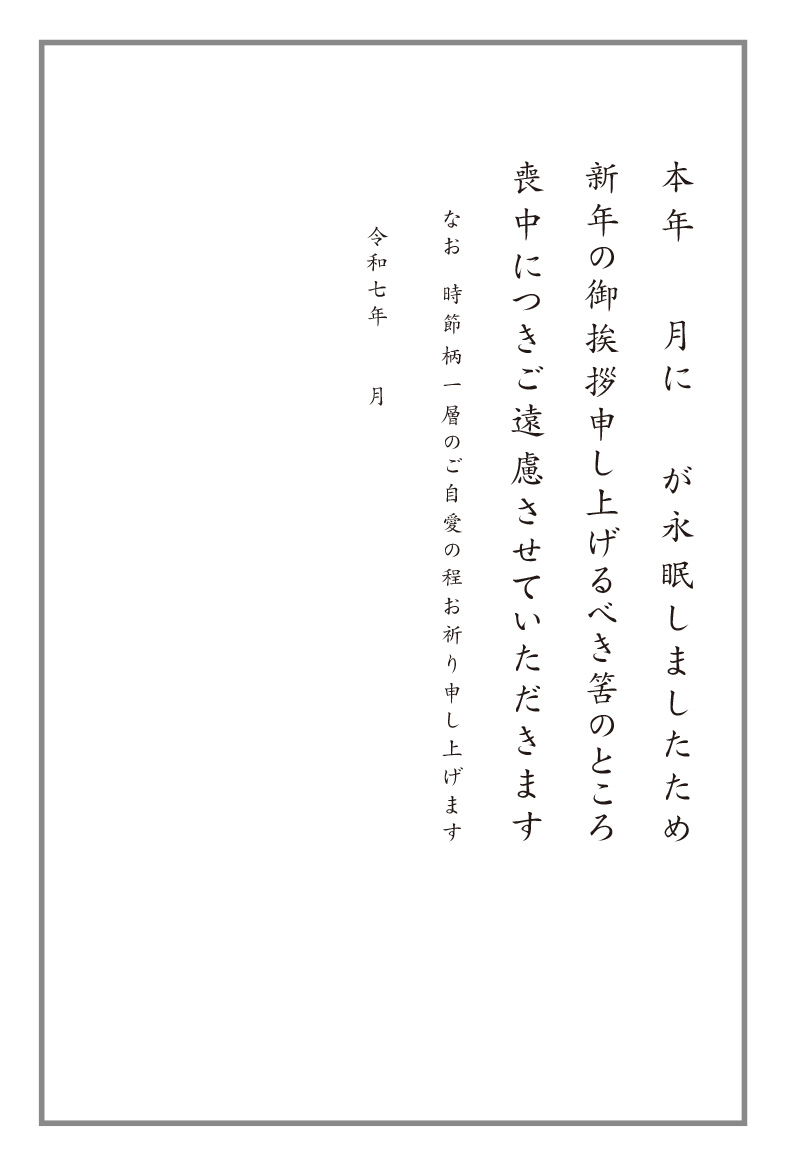 本年　　月に　　が永眠しましたため
新年の御挨拶申し上げるべき筈のところ
喪中につきご遠慮させていただきます
なお　時節柄一層のご自愛の程お祈り申し上げます
令和七年　　月